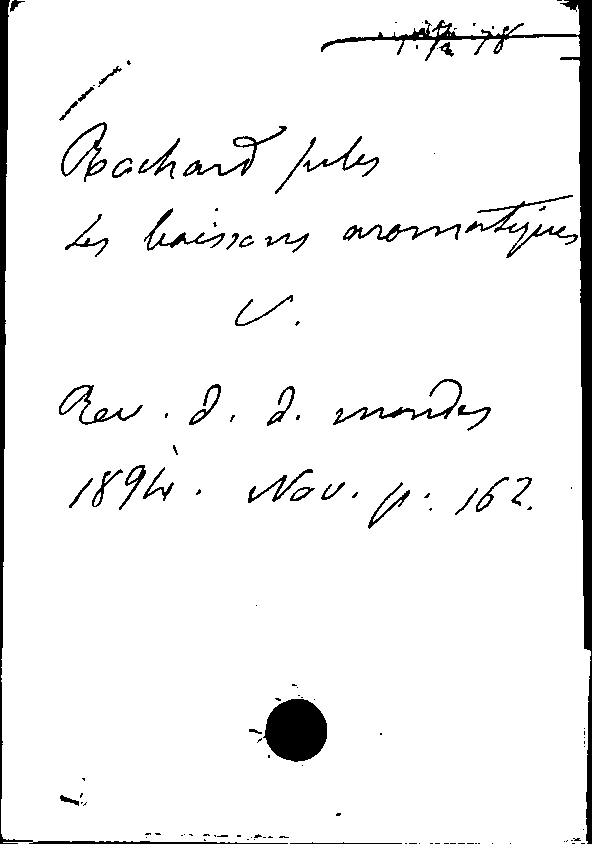 Rochard Jules
Les boissons aromatiques
V.
Rev. d. d. mondes
1894. Nov. p. 162.